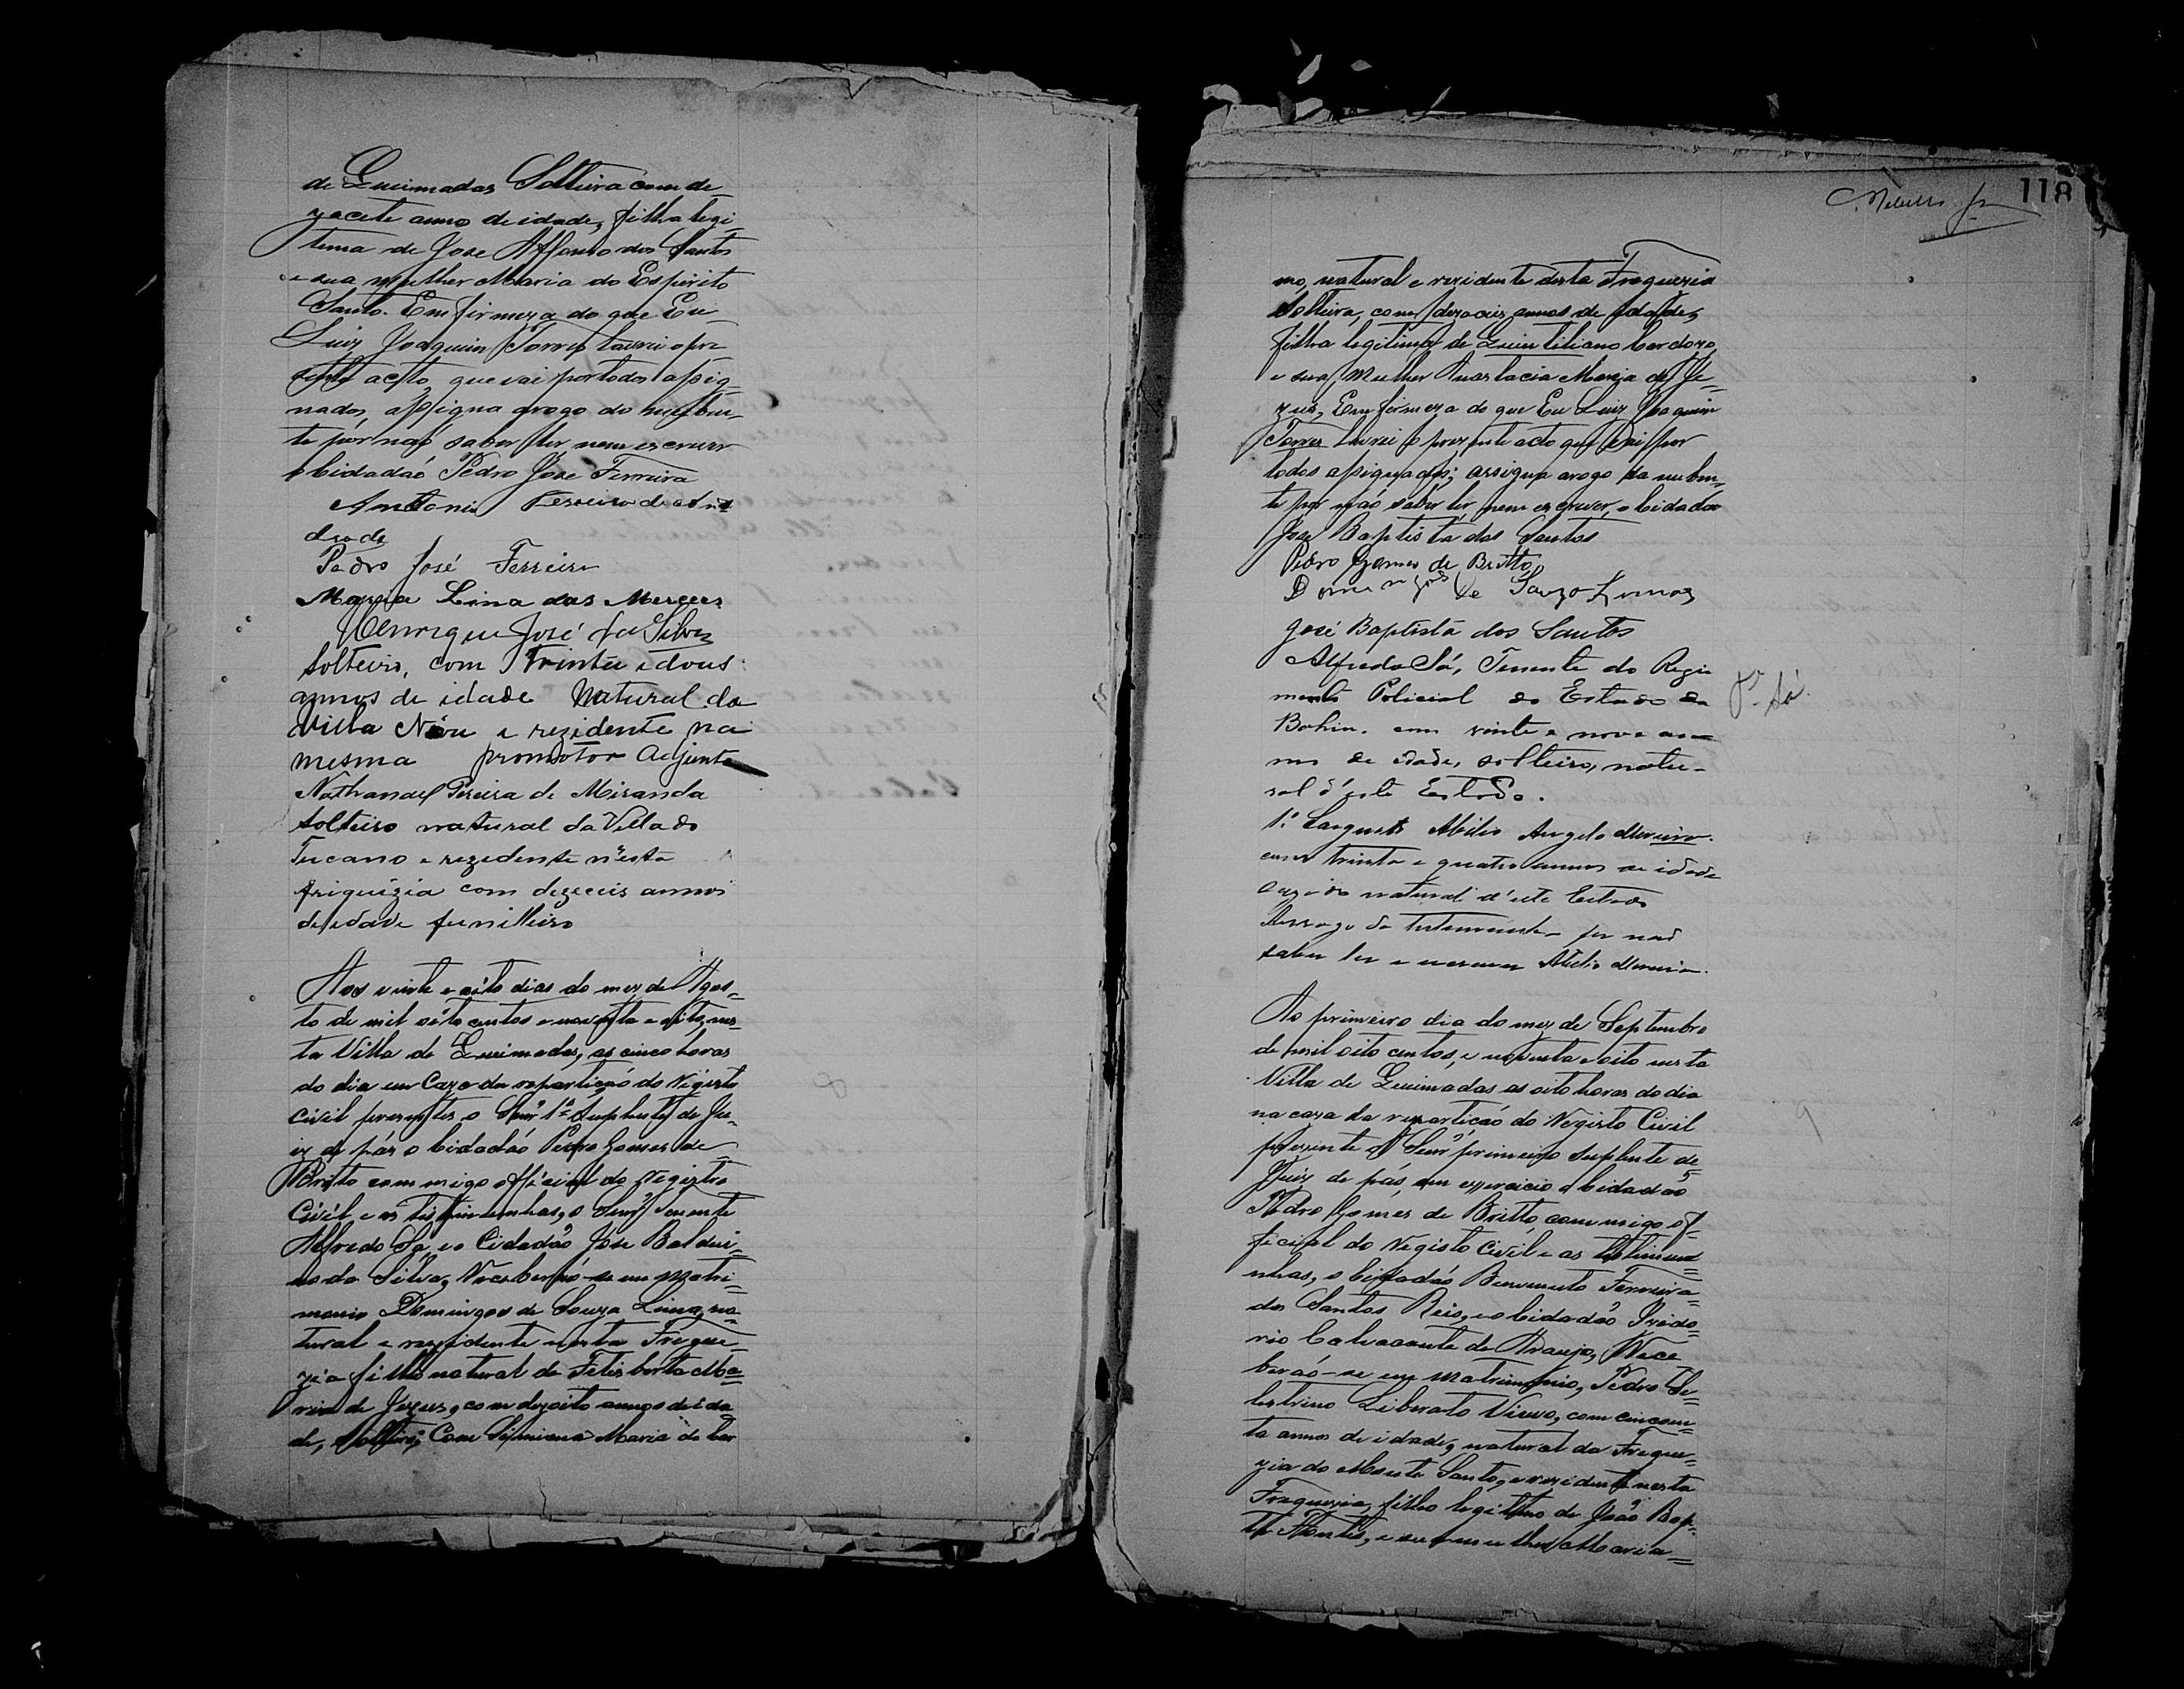 de Queimadas Solteira com de
zacete annos de idade, filha legi
tima de Jose Affonso dos Santos
e sua mulher Maria do Espirito
Santo. Em firmeza do que Eu
Luiz Joaquim Torres lavrei o pre
sente acto, que vai por todos assig-
nados, assigna arogo do nuben-
te por não saber ler, nem escrever
o Cidadão Pedro José Ferreira
Antonio Ferreira de
drade
Pedro José Ferreira
Maria Lina das Merces
Henrique José da Silva
solteiro, com trinta e dous
annos de idade Natural da
Villa Nova e rezidente na
mesma promotor Adjunto
Nathanael Pereira de Miranda
solteiro natural da Villa do
Tucano e rezedente n'esta
friguizia com dezeceis annos
de edade funilleiro
Aos vinte e oito dias do mez de Agos=
to de mil oito centos e noventa e oito, nes-
ta Villa de Queimadas, as cinco horas
do dia em Caza da repartição do Registo
civil prezentes o Senr 1º Suplente de Ju-
iz de pás o Cidadão Pedro Gomes de
Britto commigo official do Registro
Civil e as testimunhas, o Senr Tenente
Alfredo Sá, e o Cidadão José Baldui-
no da Silva, Receberão-se em Matri-
monio Domingos de Souza Lima, na-
tural e rezidente nesta Fregue-
zia filho natural de Felisberta Ma=
ria de Jezus, com dezoito annos de ida
de, Solteiro, Com Maria do Car
118
mo, natural e rezidente desta Freguezia
Solteira, com dezaceis annos de idade,
filha legitima de Quintiliano Cardozo,
e sua Mulher Anastacia Maria de Je-
zus, Em firmeza do que Eu Luiz Joaquim
Torres lavrei o prezente acto que vai por
todos assignados; assigna arogo da nuben-
te por não saber ler nem escrever, o Cidadão
José Baptista dos Santos
Pedro Gomes de Britto
Domingos de Souza Lima
José Baptista dos Santos
Alfredo Sá, Tenente do Regi
mento Policial do Estado da
Bahia, com vinte e nove an
nos de idade, solteiro, natu-
ral d'este Estado.
Sá
1º Sargento Abilio Angelo Moreira
com trinta e quatro annos de idade
cazado natural d'este Estado
Arrogo da testemunha por não
saber ler e escrever Abilio Moreira
Ao primeiro dia do mez de Septembro
de mil oito centos, e noventa e oito nesta
Villa de Queimadas as oito horas do dia
na caza da repartição do Registo Civil
prezente o Senr primeiro suplente de
Juiz de pás, em exercicio o Cidadão
Pedro Gomes de Britto, commigo of-
ficial do Registo Civil e as testimu=
nhas, o Cidadão Benvenuto Ferreira
dos Santos Reis, e o Cidadão Izido=
rio Calvacante de Araujo, Rece
berão-se em Matrimonio, Pedro Se=
lestrino Liberato Viuvo, com cincoen-
ta annos de idade, natural da Fregue-
zia do Monte Santo, e rezidente nesta
Freguezia, filho legitimo de João Bap-
ta Fontes, e sua mulher Maria=